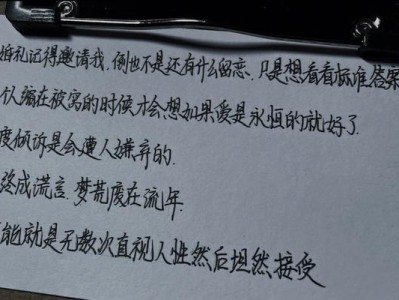 婚礼记得邀请我.倒也不是还有什么留恋.只是想看看标准答案
人缩在被窝的时候才会想如果爱是永恒的就好了
度倾诉是会遭人嫌弃的.
终成谎言.梦荒废在流年.
能就是无数次直视人性然后坦然接受